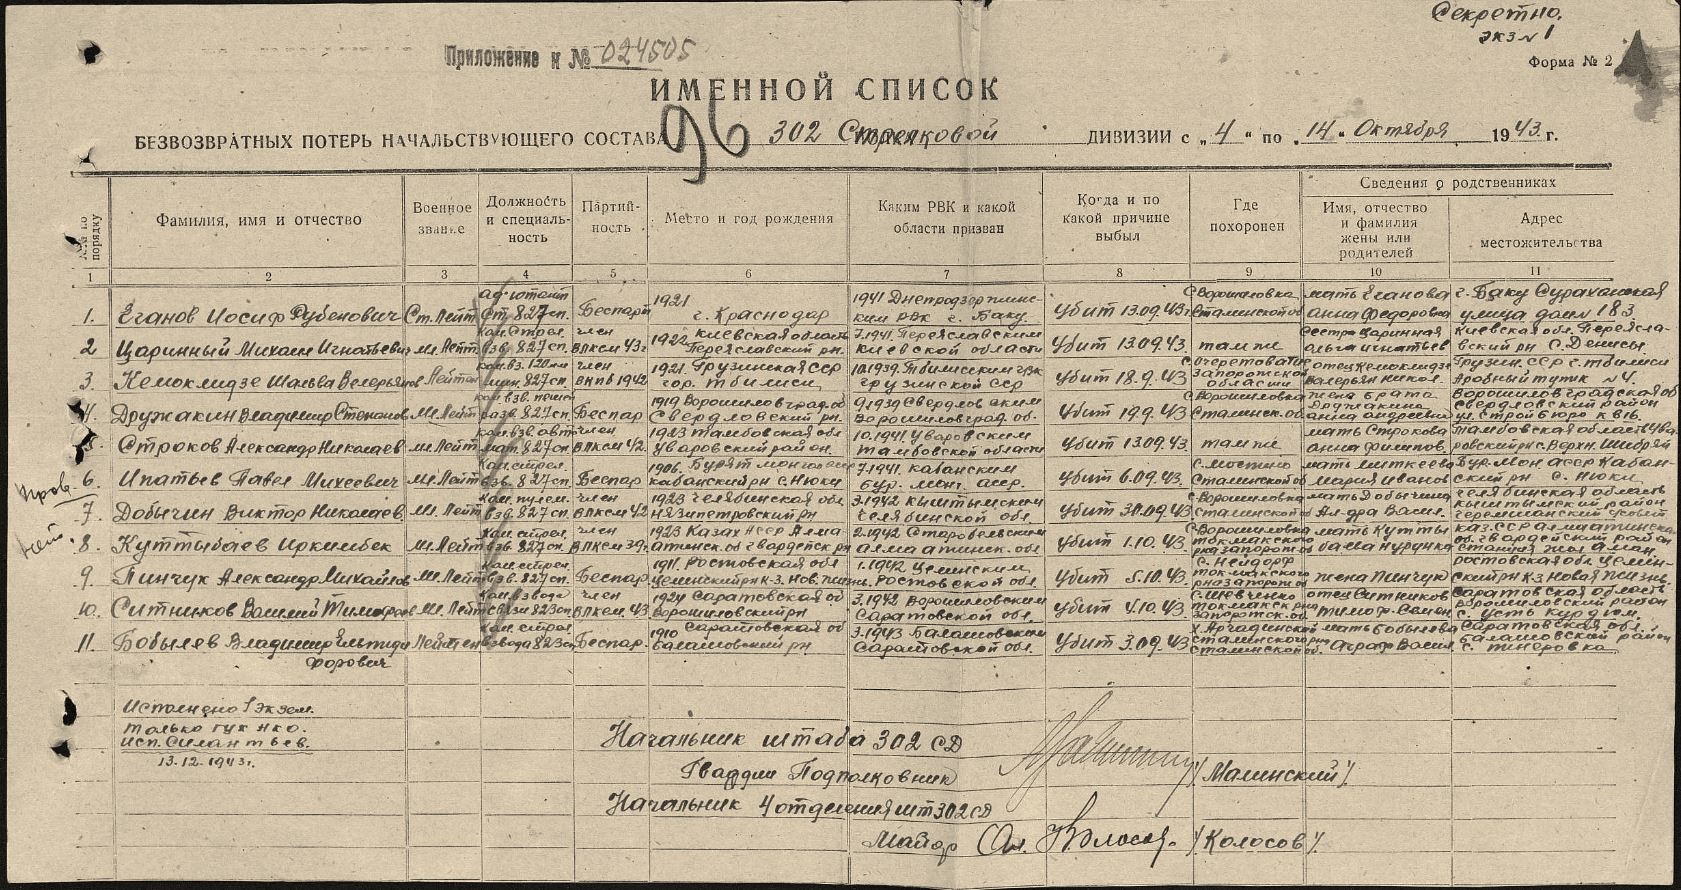 Секретно.
экз № 1
Приложение к № 024505
Форма № 2
ИМЕННОЙ СПИСОК
96
БЕЗВОЗВРАТНЫХ ПОТЕРЬ НАЧАЛЬСТВУЮЩЕГО СОСТАВА 302 Стрелковой ДИВИЗИИ с „4“ по „14“ Октября 1943 г.
№№ по порядку
Фамилия, имя и отчество
Военное звание
Должность и специальность
Партийность
Место и год рождения
Каким РВК и какой области призван
Когда и по какой причине выбыл
Где похоронен
Сведения о родственниках
Имя, отчество и фамилия жены или родителей
Адрес местожительства
1 2 3 4 5 6 7 8 9 10 11
1. Еганов Иосиф Рубенович Ст. Лейт. адъютант ст. 827 сп. Беспарт 1921 г. Краснодар 1941 Днепродзержинским РВК г. Баку Убит 13.09.43г с Ворошиловка Сталинской об мать Еганова анна Федоровна г. Баку Сураханская улица дом 183
2 Царинный Михаил Игнатьевич мл. Лейт. ком. стрел. взв. 827 сп. член ВЛКСМ 43г 1922 Киевская область Переяславский рн. 7.1941. Переяславским Киевской области Убит 13.09.43. там же Сестра Царинная ольга игнатьев Киевская обл. Переяславский рн с. Денисы
3. Кемоклидзе Шалва Валерьянов Лейтен ком. вз. 120 мм мин. 827 сп. член ВКПб 1942 1921. Грузинская ССР гор. Тбилиси 10.1939. Тбилисским ГВК Грузинской ССР Убит 18.9.43 Запорожской области отец Кемоклидзе Валерьян Никол. Грузин. ССР г. Тбилиси Аробный тупик № 4.
4. Дружакин Владимир Степанов Мл. Лейт. разв. 827 сп. Беспар 1919 Ворошиловград. об Свердловский рн. 9.1939 Свердловским Ворошиловград. об. Убит 19.9.43 с Ворошиловка Сталинск. об жена брата Дружакина анна андреевна Ворошиловградская об Свердловский район ул. Стройбюро к в 16
5. Строков Александр Николаев мл. Лейт ком. взв. авт мат. 827 сп. член ВЛКСМ 42. 1923 Тамбовская обл Уваровский район. 10.1941. Уваровским Тамбовской области Убит 13.09.43. там же мать Строкова анна филипов. Тамбовская область Уваровский рн с. Верхн. Шибряй
6. Ипатьев Павел Михеевич Мл. Лейт ком. стрел. взв. 827 сп. Беспар 1906. Бурят монгольск кабанский рн с. Нюки 7.1941. Кабанским Бур. монг. асср. Убит 6.09.43 Сталинской об мать Миткеева мария иванов Бур-Мон асср Кабанский рн с. Нюки.
7. Добычин Виктор Николаев. Мл. Лейт ком. пулем. взв. 827 сп. член ВЛКСМ 42 1923 Челябинская обл Нязепетровский рн 3.1942 Кыштымским Челябинской обл. Убит 30.09.43 с Ворошиловка Сталинской об мать Добычина Ал-дра Васил. Челябинская область Кыштымский район
8. Куттыбаев Иркимбек Мл. Лейт ком. стрел. взв. 827 сп. член ВЛКСМ 39г. 1923 Казах АССР Алма атинск. об гвардейск рн 2.1942 алма атинск. обл Убит 1.10.43 с. Ворошиловка Токмакского рна запорож об мать Кутты баева Нурунка Каз. ССР алмаатинская об. гвардейский район
9 Пинчук Александр Михайлов Мл. Лейт ком. стрел. взв. 827 сп. Беспар. 1911. Ростовская обл Целинский рн к-з. Нов. жизнь 1.1942 Целинским Ростовской обл Убит 5.10.43. с. Нейдорф Токмакского рна запорож об жена Пинчук Ростовская обл. Целинский рн к з Новая Жизнь.
10. Ситников Василий Тимофеев Мл. Лейт ком. взвода связи 823 сп член ВЛКСМ 43 1924 Саратовская об Ворошиловский рн 3.1942 Ворошиловским Саратовской обл Убит 4.10.43 с. Шевченко Токмакск рна запорож. об. отец Ситников тимоф. Семен Саратовская область Ворошиловский район с. Усть Курдюм
11. Бобылев Владимир Ельпиди форович Лейтен ком. стрел взвода 823 сп Беспар. 1910 Саратовская об Балашовский рн 3.1943 Балашовским Саратовской обл. Убит 3.09.43 Сталинской об. мать Бобылева Аграф Васил. Саратовская обл. Балашовский район с. Тинеровка
Пров.
Исполнено 1 экзем.
только ГУК НКО.
исп. Силантьев.
13.12.1943г.
Начальник штаба 302 СД
Гвардии Подполковник /Малинский/.
Начальник 4 отделения шт 302 СД
Майор /Колосов/.